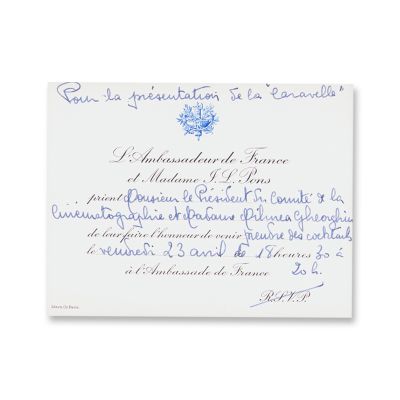 Pour la présentation de la "Caravelle"
L'Ambassadeur de France
et Madame J. L. Pons
prient Monsieur le Président du Comité de la
Cinématographie et Madame Mihnea Gheorghiu
de leur faire l'honneur de venir prendre des cocktails
le vendredi 23 avril de 18 heures 30 à
à l'Ambassade de France 20 h.
R.S.V.P.